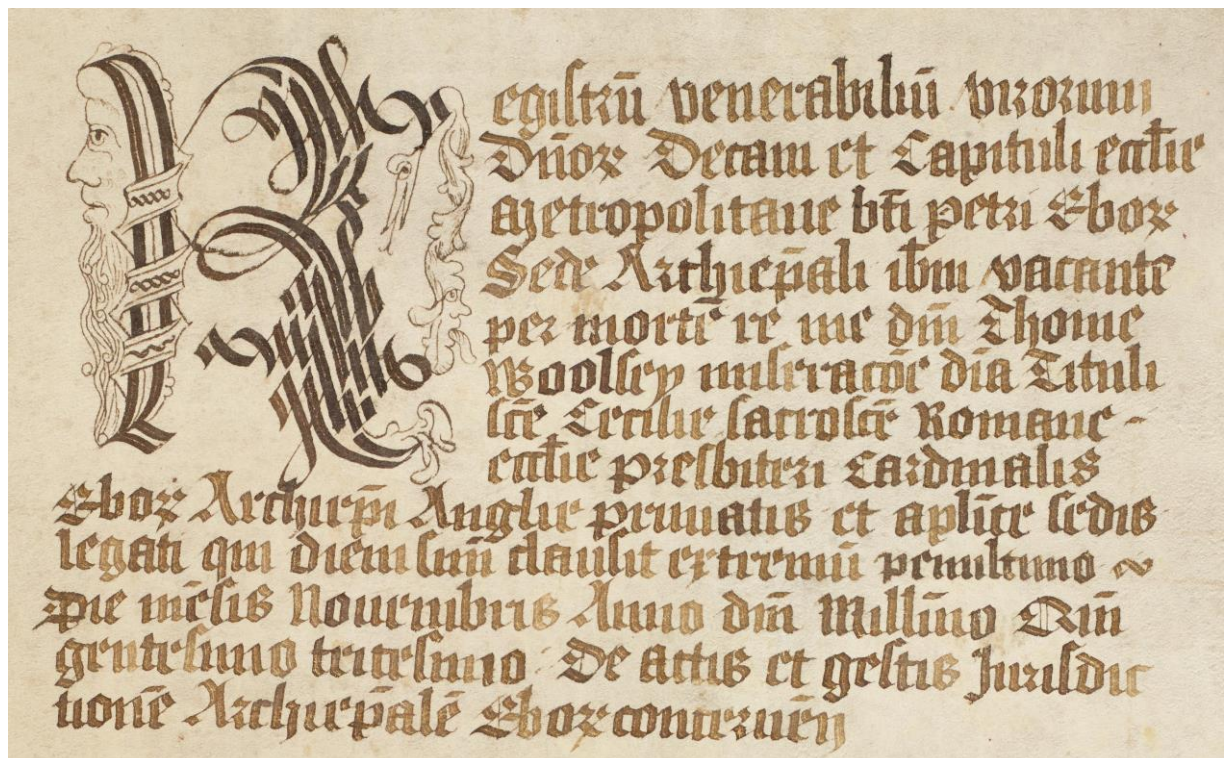 Registrū venerabiliū virorum
Dn̄oꝝ Decani et Capituli eccl̄ie
Metropolitane bt̄i Petri Eboꝝ
Sede Archiep̄ali ib̄m vacante
per mortē re me dn̄i Thome
Woolsey miseracōe dīa Tituli
sc̄te Cecilie sacrosc̄te Romane -
eccl̄ie presbiteri Cardinalis
Eboꝝ Archiep̄i Anglie primatis et apl̄ice sedis
legati qui diem suū clausit extremū penultimo
Die mēsis Nouembris Anno dn̄i Millīmo Quin
gentesimo tricesimo De actis et gestis Jurisdic
tionē Archiep̄alē Eboꝝ concernēn